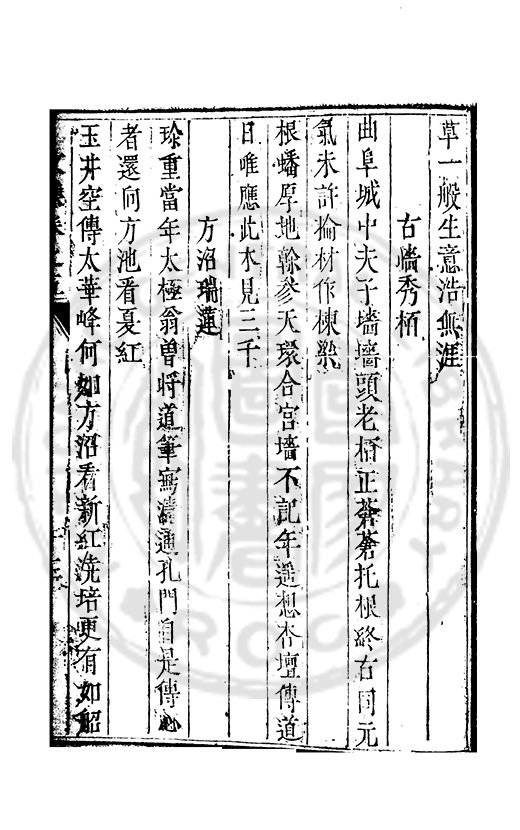 草一般生意浩無涯
古牆秀栢
曲阜城中夫子墻墻頭老栢正蒼蒼托根終右同元
氣未許掄材作棟樑
根蟠厚地幹參天環合宮墻不記年遥想杏壇傳道
日唯應此木見三千
方沼瑞蓮
珍重當年太極翁曽將道筆寫濂通孔門自是傳心
者還向方池看夏紅
玉井空傳太華峰何如方沼看新紅洗培更有如船